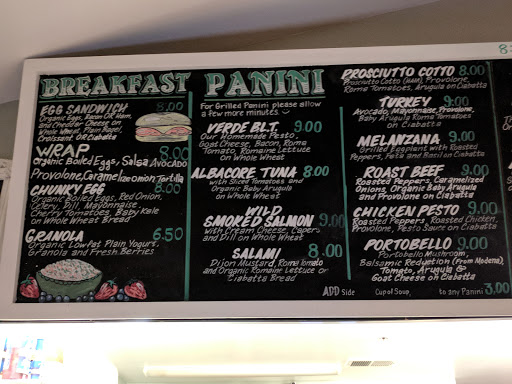 BREAKFAST
EGG SANDWICH 8.00
Organic Eggs, Bacon OR Ham,
and Cheddar Cheese on
Whole Wheat, Plain Bagel,
Croissant OR Ciabatta
WRAP 8.00
Organic Boiled Eggs, Salsa, Avocado
Provolone, Caramelize onion Tortilla
CHUNKY EGG 8.00
Organic Boiled Eggs, Red Onion,
Celery, Dill, Mayonnaise,
Cherry Tomatoes, Baby Kale
on Whole Wheat Bread
GRANOLA 6.50
Organic Lowfat Plain Yogurt,
Granola and Fresh Berries
PANINI
For Grilled Panini please allow
a few more minutes
VERDE BLT. 9.00
Our Homemade Pesto,
Goat Cheese, Bacon, Roma
Tomato, Romaine Lettuce
on Whole Wheat
ALBACORE TUNA 8.00
with Sliced Tomatoes and
Organic Baby Arugula
on Whole Wheat
WILD
SMOKED SALMON 9.00
with Cream Cheese, Capers
and Dill on Whole Wheat
SALAMI 8.00
Dijon Mustard, Roma Tomato
and Organic Romaine Lettuce or
Ciabatta Bread
PROSCIUTTO COTTO 8.00
Prosciutto Cotto (HAM), Provolone,
Roma Tomatoes, Arugula on Ciabatta
TURKEY 9.00
Avocado, Mayonnaise, Provolone,
Baby Arugula Roma Tomatoes
on Ciabatta
MELANZANA 9.00
Grilled Eggplant with Roasted
Peppers, Feta and Basil on Ciabatta
ROAST BEEF 9.00
Roasted Peppers, Caramelized
Onions, Organic Baby Arugula
and Provolone on Ciabatta
CHICKEN PESTO 9.00
Roasted Peppers, Roasted Chicken,
Provolone, Pesto Sauce on Ciabatta
PORTOBELLO 9.00
Portobello Mushroom,
Balsamic Reduction (From Modena)
Tomato, Arugula &
Goat Cheese on Ciabatta
ADD Side Cup of Soup, to any Panini 3.00